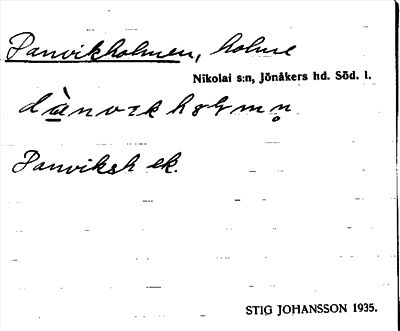 Danvikholmen, holme
Nikolai s:n, Jönåkers hd. Söd. l.
Danviksh ek.
STIG JOHANSSON 1935.